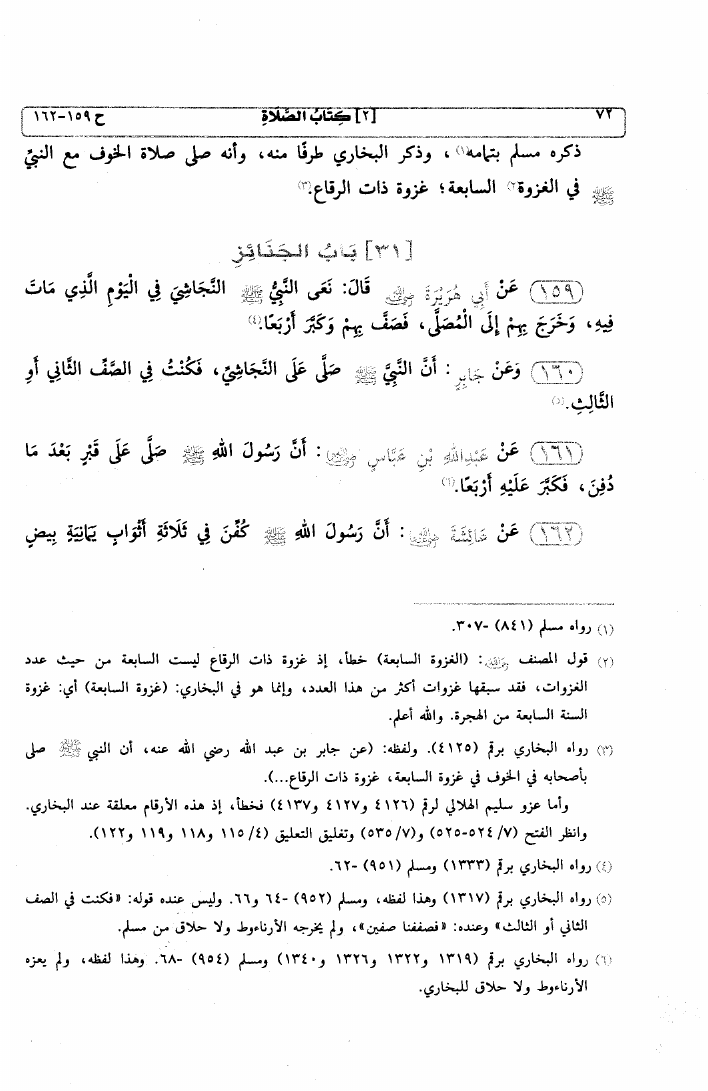 ٧٢ [٢] كِتَابُ الصَّلَاةِ ح ١٥٩-١٦٢
ذكره مسلم بتمامه(١)، وذكر البخاري طرفًا منه، وأنه صلى صلاة الخوف مع النبيِّ
ﷺ في الغزوة(٢) السابعة؛ غزوة ذات الرقاع.(٣)
[٣١] بَابُ الجَنَائِزِ
(١٥٩) عَنْ أَبِي هُرَيْرَةَ رضي الله عنه قَالَ: نَعَى النَّبِيُّ ﷺ النَّجَاشِيَ فِي الْيَوْمِ الَّذِي مَاتَ
فِيهِ، وَخَرَجَ بِهِمْ إِلَى الْمُصَلَّى، فَصَفَّ بِهِمْ وَكَبَّرَ أَرْبَعًا.(٤)
(١٦٠) وَعَنْ جَابِرٍ: أَنَّ النَّبِيَّ ﷺ صَلَّى عَلَى النَّجَاشِيِّ، فَكُنْتُ فِي الصَّفِّ الثَّانِي أَوِ
الثَّالِثِ.(٥)
(١٦١) عَنْ عَبْدِاللهِ بْنِ عَبَّاسٍ رضي الله عنهما: أَنَّ رَسُولَ اللهِ ﷺ صَلَّى عَلَى قَبْرٍ بَعْدَ مَا
دُفِنَ، فَكَبَّرَ عَلَيْهِ أَرْبَعًا.(٦)
(١٦٢) عَنْ عَائِشَةَ رضي الله عنها: أَنَّ رَسُولَ اللهِ ﷺ كُفِّنَ فِي ثَلَاثَةِ أَثْوَابٍ يَمَانِيَةٍ بِيضٍ
(١) رواه مسلم (٨٤١) -٣٠٧.
(٢) قول المصنف رحمه الله: (الغزوة السابعة) خطأ، إذ غزوة ذات الرقاع ليست السابعة من حيث عدد
الغزوات، فقد سبقها غزوات أكثر من هذا العدد، وإنما هو في البخاري: (غزوة السابعة) أي: غزوة
السنة السابعة من الهجرة. والله أعلم.
(٣) رواه البخاري برقم (٤١٢٥). ولفظه: (عن جابر بن عبد الله رضي الله عنه، أن النبي ﷺ صلى
بأصحابه في الخوف في غزوة السابعة، غزوة ذات الرقاع...).
وأما عزو سليم الهلالي لرقم (٤١٢٦ و٤١٢٧ و٤١٣٧) فخطأ، إذ هذه الأرقام معلقة عند البخاري.
وانظر الفتح (٧/ ٥٢٤-٥٢٥) و(٧/ ٥٣٥) وتغليق التعليق (٤/ ١١٥ و١١٨ و١١٩ و١٢٢).
(٤) رواه البخاري برقم (١٣٣٣) ومسلم (٩٥١) -٦٢.
(٥) رواه البخاري برقم (١٣١٧) وهذا لفظه، ومسلم (٩٥٢) -٦٤ و٦٦. وليس عنده قوله: «فكنت في الصف
الثاني أو الثالث» وعنده: «فصففنا صفين»، ولم يخرجه الأرناءوط ولا حلاق من مسلم.
(٦) رواه البخاري برقم (١٣١٩ و١٣٢٢ و١٣٢٦ و١٣٤٠) ومسلم (٩٥٤) -٦٨. وهذا لفظه، ولم يعزه
الأرناءوط ولا حلاق للبخاري.